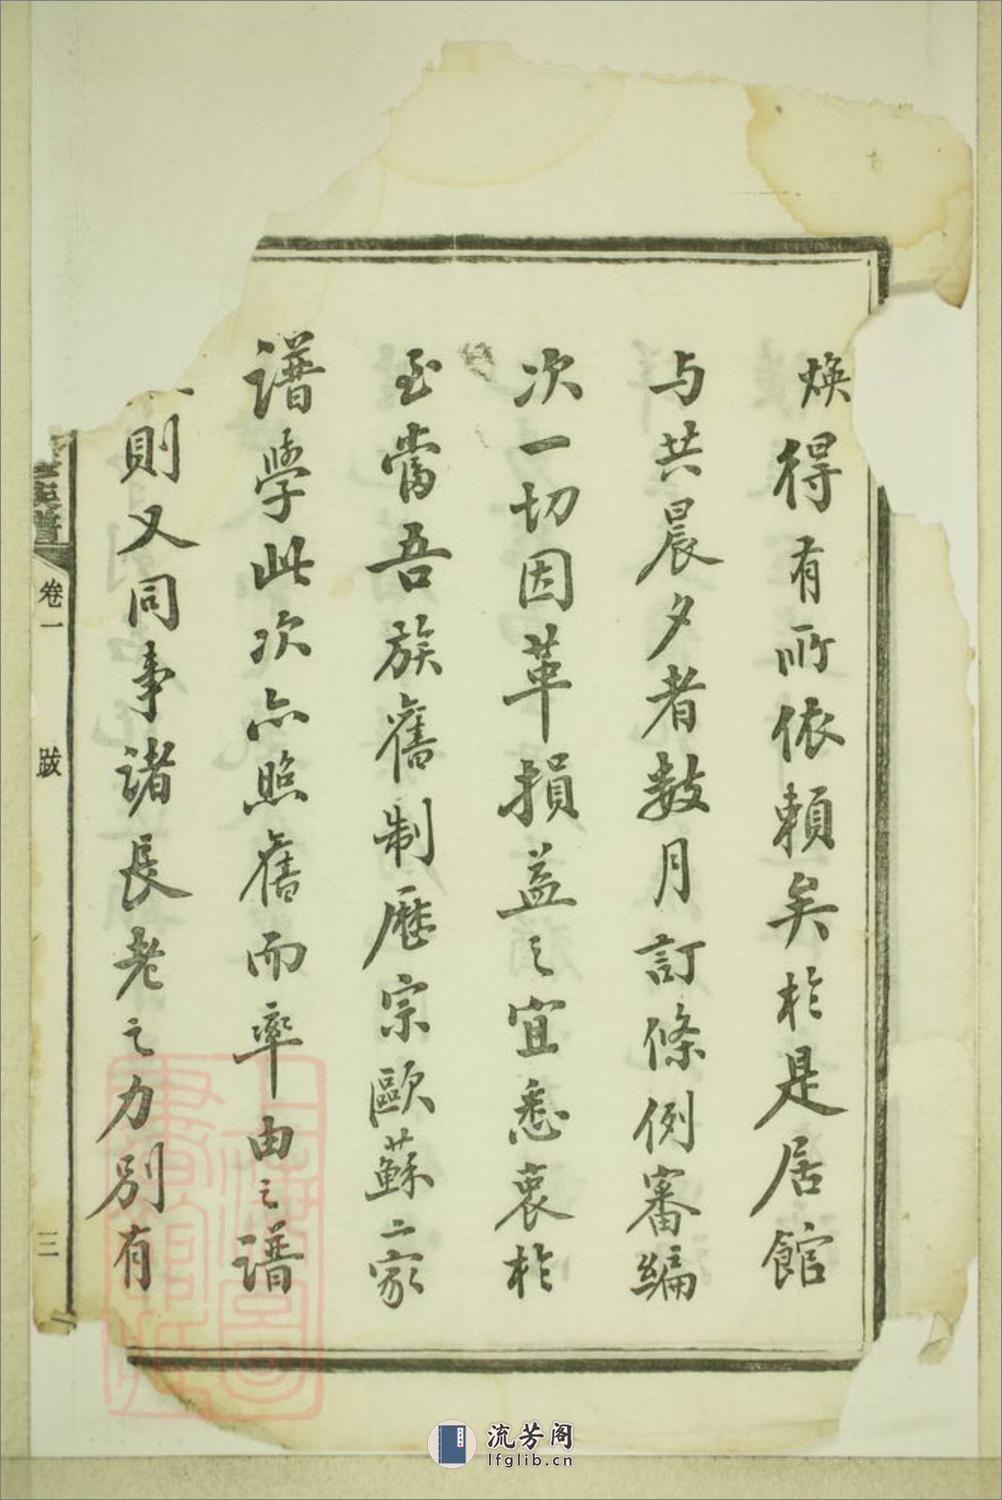 煥得有所依賴矣於是居館
与共晨夕者数月訂條例審編
次一切因革損益之宜悉衷於
至當吾族舊制歷宗歐蘇二家
譜學此次亦照舊而率由之譜
則又同事諸長老之力别有
族譜
卷一
跋
三
流芳阁
lfglib.cn